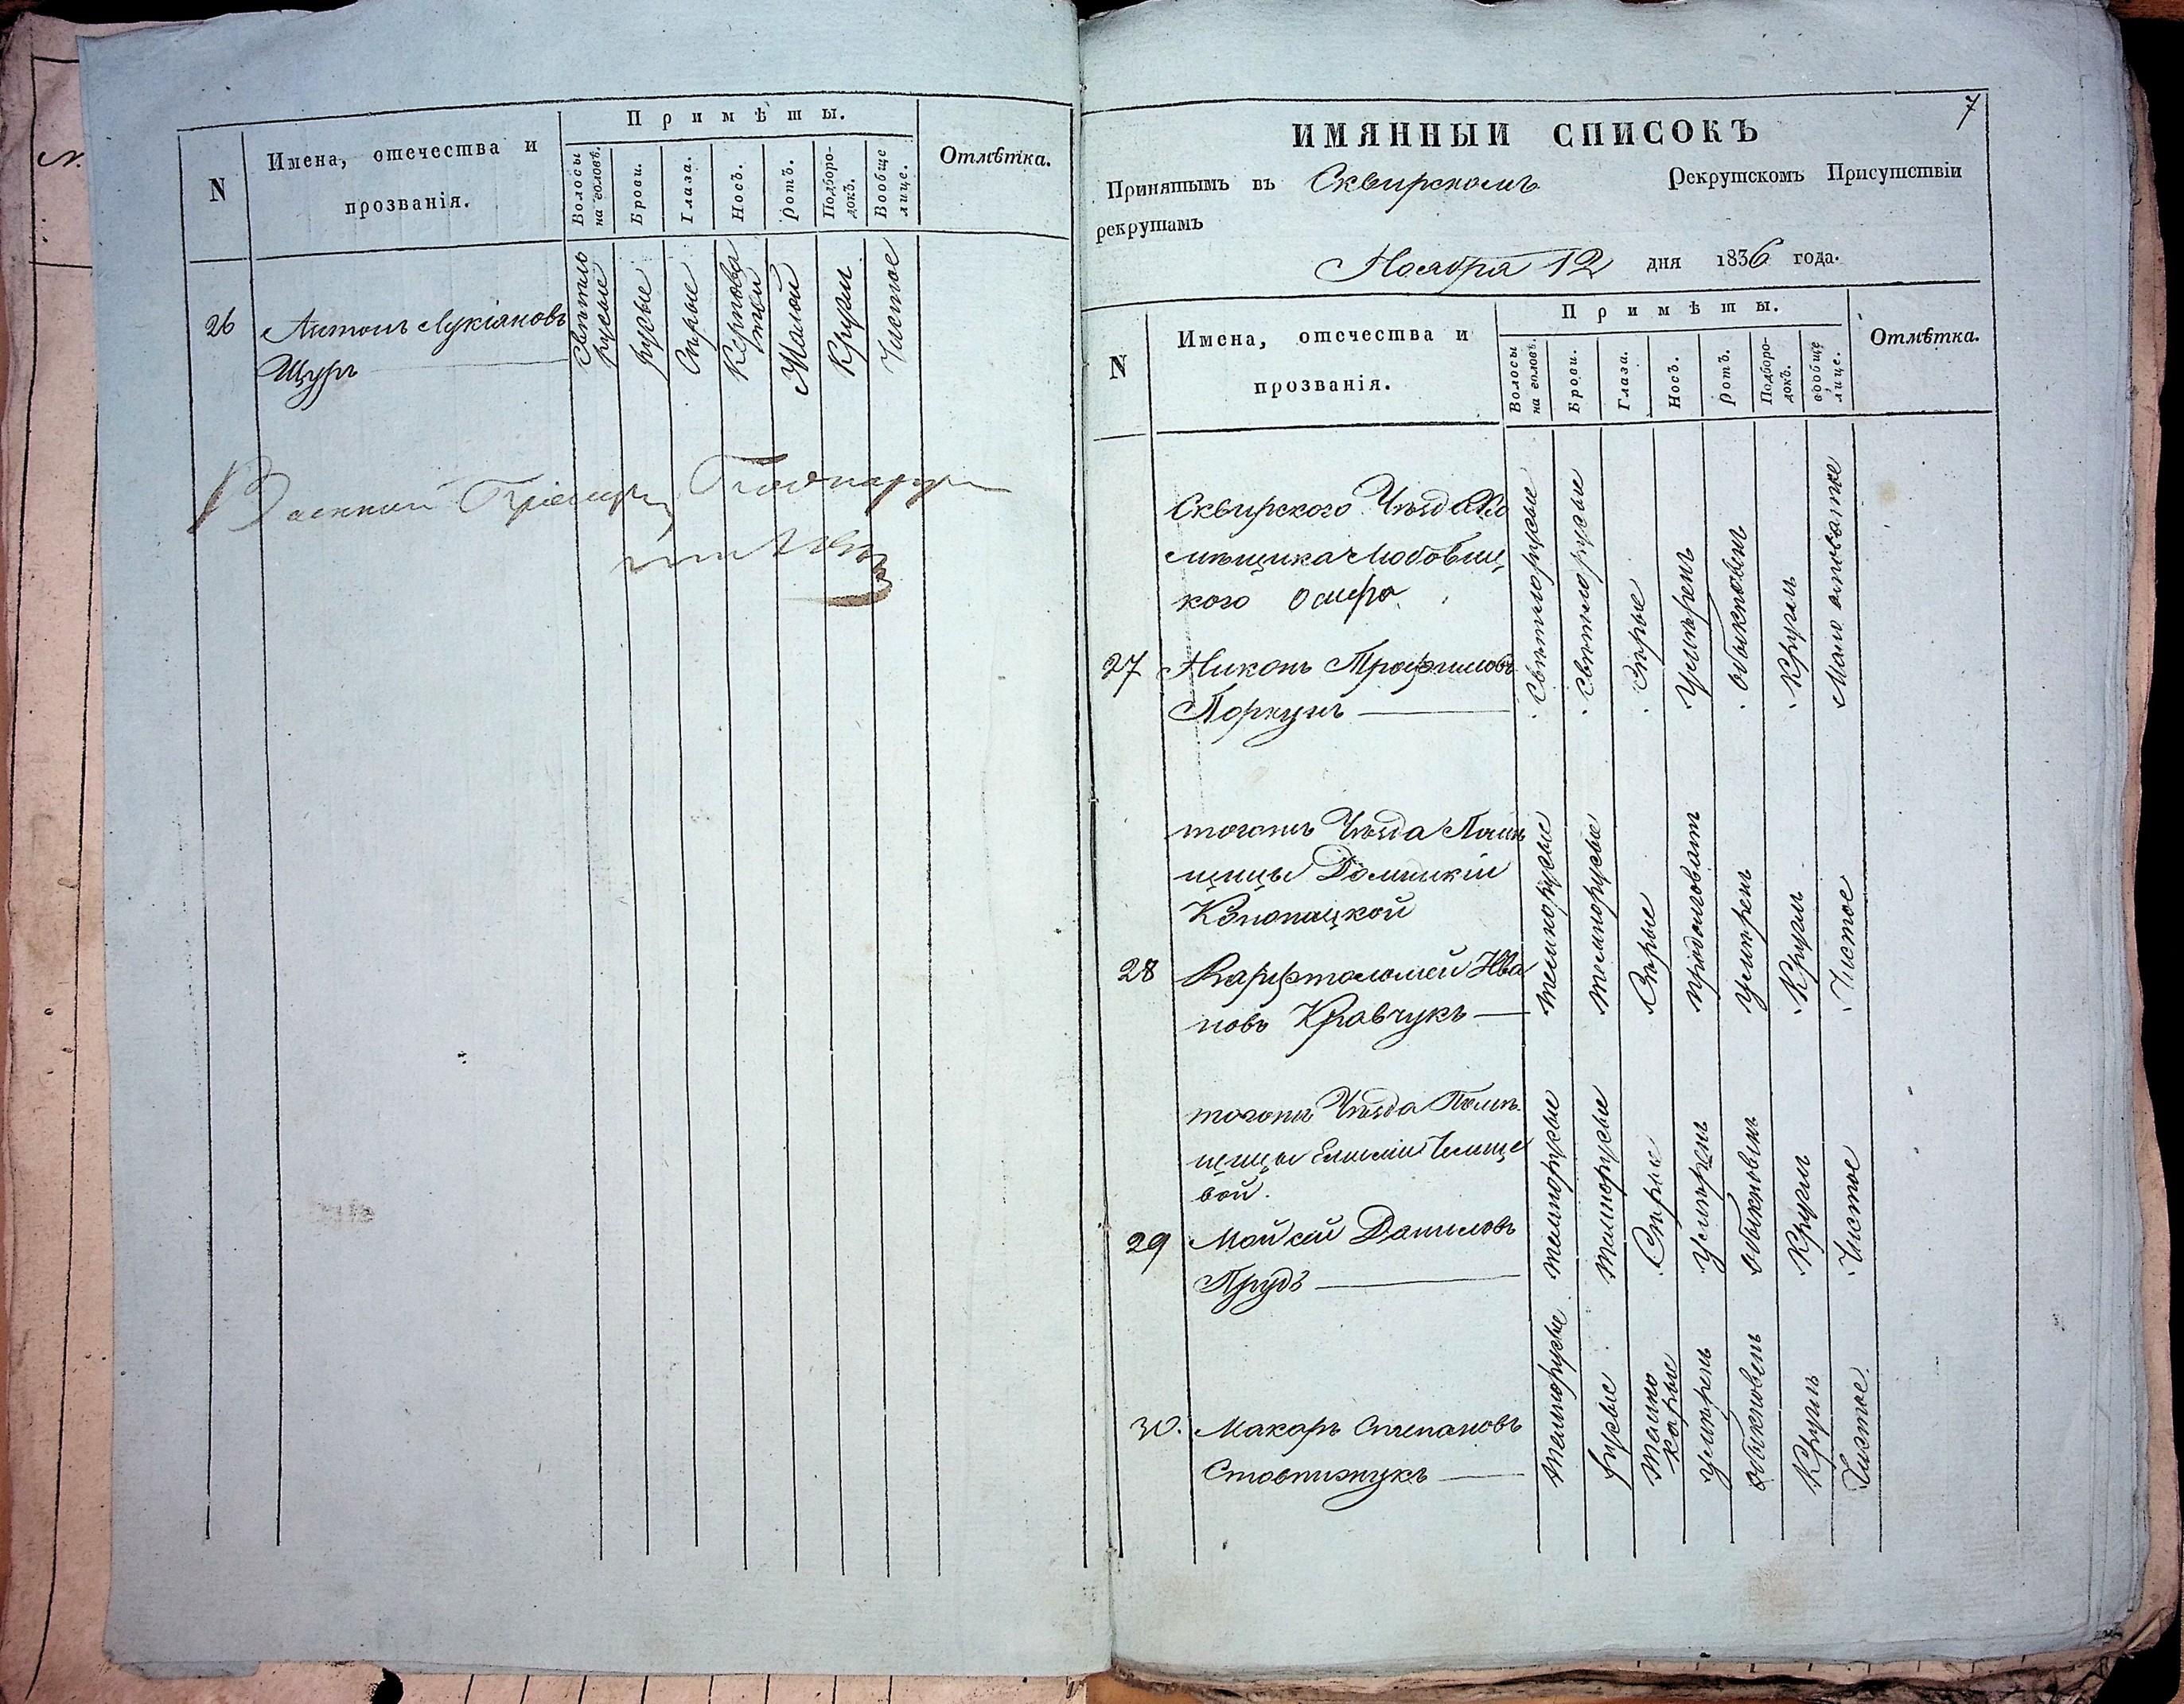 N
Имена, отечества и
прозванія.
Примѣты.
Волосы
на головѣ.
Брови.
Глаза.
Носъ.
Ротъ.
Подборо-
докъ.
Вообще
лице.
Отмѣтка.
26
Антонъ Лукіановъ
Щуръ
Светло
русые
русые
Сѣрые
Малой
Кругл
Чистое
Военный Пріемщикъ
7
ИМЯННЫЙ СПИСОКЪ
Принятымъ въ Сквирскомъ Рекрутскомъ Присутствіи
рекрутамъ
Ноября 12 дня 1836 года.
N
Имена, отечества и
прозванія.
Примѣты.
Волосы
на головѣ.
Брови.
Глаза.
Носъ.
Ротъ.
Подборо-
докъ.
вообще
лице.
Отмѣтка.
Сквирского Уѣзда По
мѣщика Любовиц
кого
27
Никонъ Трофимовъ
Поркунъ
Свѣтлорусые
Свѣтлорусые
Сѣрые
Умѣренъ
обыкновенъ
Кругл
Мало
тогожъ Уѣзда Помѣ
щицы Доминикіи
28
Варфтоломей Ива
новъ Кравчукъ
темнорусые
темнорусые
Сѣрые
продолговат
Умѣренъ
Кругл
Чистое
тогожъ Уѣзда Помѣ
щицы Емиліи Челище
вой.
29
Мойсей Даниловъ
Прудъ
темнорусые
темнорусые
Сѣрые
Умѣренъ
обыкновенъ
Кругл
Чистое
30.
Макаръ Степановъ
темнорусые
русые
темно
карые
умѣренъ
обыкновенъ
Кругл
Чистое.